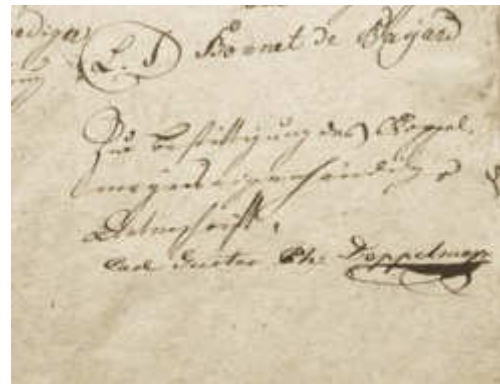 ediger
L. S Bonnet de Bayard
Zur Bestättigung des Doppel-
mayers eigenhändiger
Unterschrift,
Carl Gustav Ph: Doppelmayr